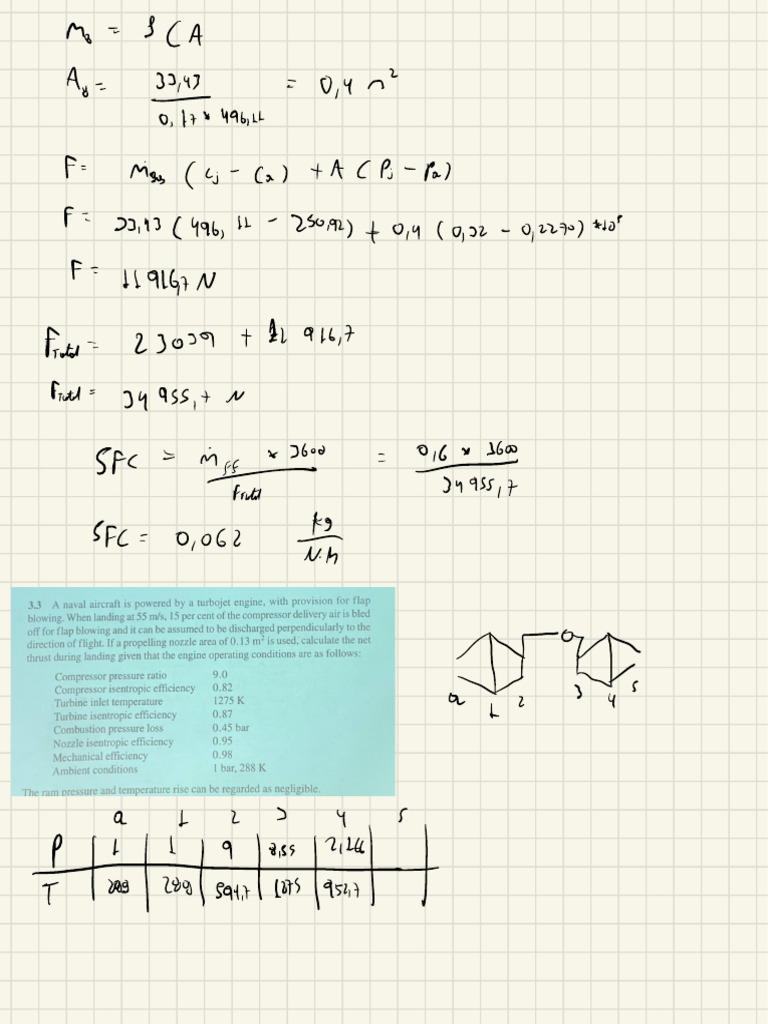 ṁ₈ = ρ C A
A₈ = 33,43 / 0,17 * 496,11 = 0,4 m²
F = ṁ (Cj - Ca) + A (Pj - Pa)
F = 33,43 (496,11 - 250,92) + 0,4 (0,52 - 0,2270) *10⁵
F = 11916,7 N
FTotal = 23039 + 11 916,7
FTotal = 34 955,7 N
SFC = ṁff * 3600 / Ftotal = 0,6 * 3600 / 34955,7
SFC = 0,062 kg / N.h
3.3 A naval aircraft is powered by a turbojet engine, with provision for flap
blowing. When landing at 55 m/s, 15 per cent of the compressor delivery air is bled
off for flap blowing and it can be assumed to be discharged perpendicularly to the
direction of flight. If a propelling nozzle area of 0.13 m² is used, calculate the net
thrust during landing given that the engine operating conditions are as follows:
Compressor pressure ratio 9.0
Compressor isentropic efficiency 0.82
Turbine inlet temperature 1275 K
Turbine isentropic efficiency 0.87
Combustion pressure loss 0.45 bar
Nozzle isentropic efficiency 0.95
Mechanical efficiency 0.98
Ambient conditions 1 bar, 288 K
The ram pressure and temperature rise can be regarded as negligible.
a 1 2 3 4 5
a 1 2 3 4 5
P 1 1 9 8,55 2,266
T 288 288 594,7 1275 952,7